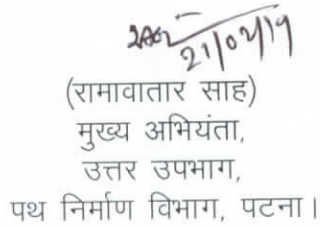 21/02/19
(रामावतार साह)
मुख्य अभियंता,
उत्तर उपभाग,
पथ निर्माण विभाग, पटना।